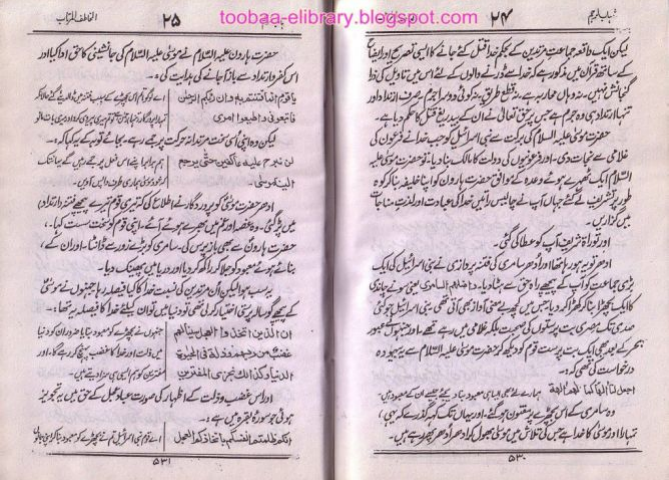 toobaa-elibrary.blogspot.com
۲۴
لیکن ایک واقعہ جماعت مرتدین کے بحکم خدا قتل کئے جانے کا ایسی تصریح اور ایضاح
کے ساتھ قرآن میں مذکور ہے کہ خدا سے ڈرنے والوں کے لئے اس میں تاویل کی ذرا
گنجائش نہیں، نہ وہاں محاربہ ہے، نہ قطع طریق، نہ کوئی دوسرا جرم، صرف ارتداد اور
تنہا ارتداد ہی وہ جرم ہے جس پر حق تعالیٰ نے ان کے بیدریغ قتل کا حکم دیا ہے۔
حضرت موسیٰ علیہ السلام کی برکت سے بنی اسرائیل کو جب خدا نے فرعون کی
غلامی سے نجات دی، اور فرعونیوں کی دولت کا مالک بنا دیا، تو حضرت موسیٰ علیہ
السلام ایک ٹھہرے ہوئے وعدہ کے موافق حضرت ہارون کو اپنا خلیفہ بنا کر کوہ
طور پر تشریف لے گئے جہاں آپ نے چالیس راتیں خدا کی عبادت اور لذت مناجات
میں گزاریں۔
اور توراۃ شریف آپ کو عطا کی گئی۔
ادھر تو یہ ہو رہا تھا اور اُدھر سامری کی فتنہ پردازی نے بنی اسرائیل کی ایک
بڑی جماعت کو آپ کے پیچھے راہ حق سے ہٹا دیا۔ واضلهم السامری یعنی سونے چاندی
کا ایک بچھڑا بنا کر کھڑا کر دیا جس میں کچھ بے معنی آواز بھی آتی تھی، بنی اسرائیل جو کئی
صدی تک مصری بت پرستوں کی صحبت بلکہ غلامی میں رہے تھے، اور جنہوں نے عبور
بحر کے بعد بھی ایک بت پرست قوم کو دیکھ کر حضرت موسیٰ علیہ السلام سے یہ بیہودہ
درخواست کی تھی کہ:۔
اجعل لنا الٰها كما لهم الهة ہمارے لئے بھی ایسا ہی معبود بنا دیجئے جیسے ان کے معبود ہیں۔
وہ سامری کے اس بچھڑے پر مفتون ہو گئے، اور یہاں تک کہہ گذرے کہ یہی،
تمہارا اور موسیٰ کا خدا ہے جس کی تلاش میں موسیٰ بھول کر ادھر اُدھر پھر رہے ہیں۔
۵۳۰
۲۵
حضرت ہارون علیہ السلام نے موسیٰ علیہ السلام کی جانشینی کا حق ادا کیا اور
اس کفر و ارتداد سے باز آ جانے کی ہدایت کی:۔
یا قوم انما فتنتم به وان ربكم الرحمٰن
فاتبعونی واطیعوا امری
لیکن وہ اپنی اسی سخت مرتدانہ حرکت پر جمے رہے، بجائے توبہ کے یہ کہا کہ:۔
لن نبرح علیه عاکفین حتّٰی یرجع
الینا موسیٰ
ادھر حضرت موسیٰ کو پروردگار نے اطلاع کی کہ تیری قوم تیرے پیچھے فتنہ (ارتداد)
میں پڑ گئی، وہ غصہ اور غم میں بھرے ہوئے آئے، اپنی قوم کو سخت سست کہا،
حضرت ہارون سے بھی باز پرس کی، سامری کو بڑے زور سے ڈانٹا، اور ان کے،
بنائے ہوئے معبود کو جلا کر راکھ کر دیا، اور دریا میں پھینک دیا۔
یہ سب ہوا لیکن اُن مرتدین کی نسبت خدا کا کیا فیصلہ رہا، جنہوں نے موسیٰ
کے پیچھے گوسالہ پرستی اختیار کر لی تھی، تو دنیا میں تو ان کیلئے خدا کا فیصلہ یہ تھا:۔
ان الذین اتخذوا العجل سینالهم
غضب من ربهم وذلة فی الحیوة
الدنیا وکذالك نجزی المفترین
جنہوں نے بچھڑے کو معبود بنایا ضرور ان کو دنیا
میں ذلت اور خدا کا غضب پہنچ کر رہے گا، اور
مفتریوں کو ہم ایسی ہی سزا دیتے ہیں۔
اور اس غضب و ذلت کے اظہار کی صورت عباد عجل کے حق میں یہ تجویز
ہوئی جو سورۃ بقرہ میں ہے:۔
انكم ظلمتم انفسكم باتخاذكم العجل
۵۳۱